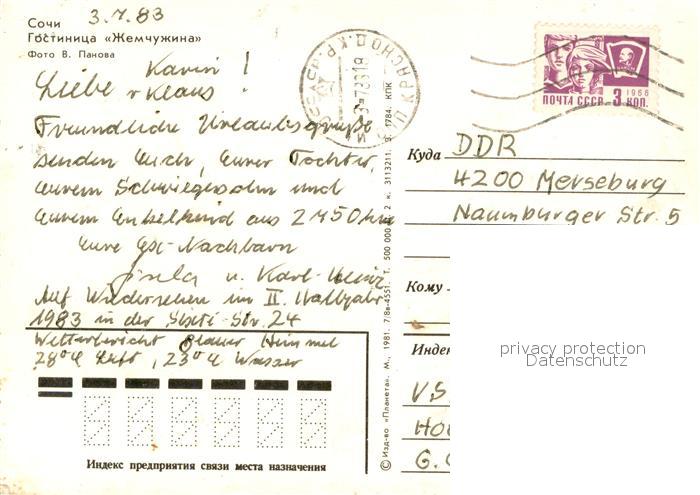 Сочи 3.7.83
Гостиница «Жемчужина»
Фото В. Панова
Liebe Karin !
+ Klaus
Freundliche Urlaubsgrüße
senden Euch, Eurer Tochter,
Eurem Schwiegersohn und
Eurem Enkelkind aus 2450 km
Eure Ex-Nachbarn
Gisela u. Karl-Heinz
Auf Wiedersehen im II. Halbjahr
1983 in der Str. 24
Wetterbericht Blauer Himmel
28°C Luft, 23°C Wasser
Индекс предприятия связи места назначения
© Изд-во «Планета». М., 1981. 7/8в-4551. Т. 500 000. 2 к. 3113211. 1784. КПК
СССР КРАСНОД.КР.
ВЛКСМ
1966
ПОЧТА СССР 3 КОП.
Куда DDR
4200 Merseburg
Naumburger Str. 5
Кому
Индек
privacy protection
Datenschutz
V.S.
G.